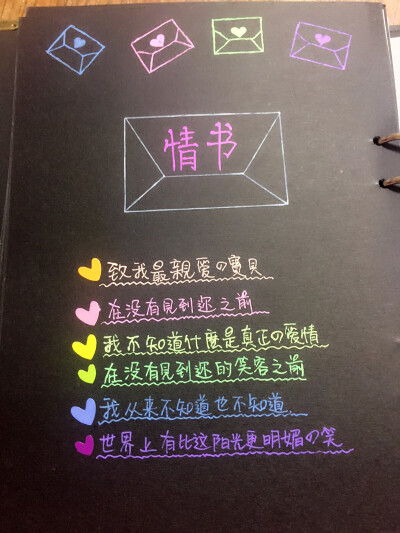 情书
致我最親爱の寶贝
在没有見到还之前
我不知道什麽是真正の爱情
在没有見到还的笑容之前
我从来不知道也不知道
世界上有比这阳光更明媚の笑